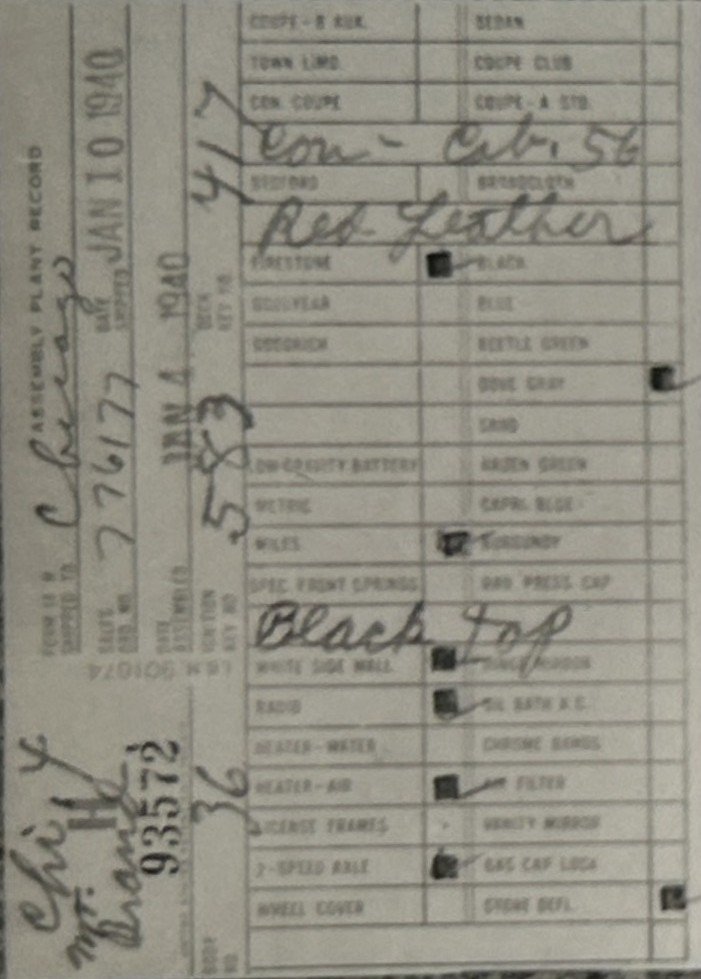 ASSEMBLY PLANT RECORD
FORM
SHIPPED TO Chicago
SALES ORD. NO. 776177
DATE SHIPPED JAN 10 1940
DATE ASSEMBLED JAN 4 1940
IGNITION KEY NO 583
DECK KEY NO. 417
BODY NO. 36
L&H 901074
Chi 4
Mr.
H
93572
COUPE-B AUX. SEDAN
TOWN LIMO. COUPE CLUB
CON. COUPE COUPE-A STD.
Con - Cab. 56
BEDFORD BROADCLOTH
Red Leather
FIRESTONE BLACK
GOODYEAR BLUE
GOODRICH BEETLE GREEN
DOVE GRAY
SAND
LOW-GRAVITY BATTERY ARDEN GREEN
METRIC CAPRI BLUE
MILES BURGUNDY
SPEC FRONT SPRINGS RAD PRESS CAP
Black top
WHITE SIDE WALL HINGE MIRROR
RADIO OIL BATH A.C.
HEATER-WATER CHROME BANDS
HEATER-AIR AIR FILTER
LICENSE FRAMES VANITY MIRROR
2-SPEED AXLE GAS CAP LOCK
WHEEL COVER STONE DEFL.